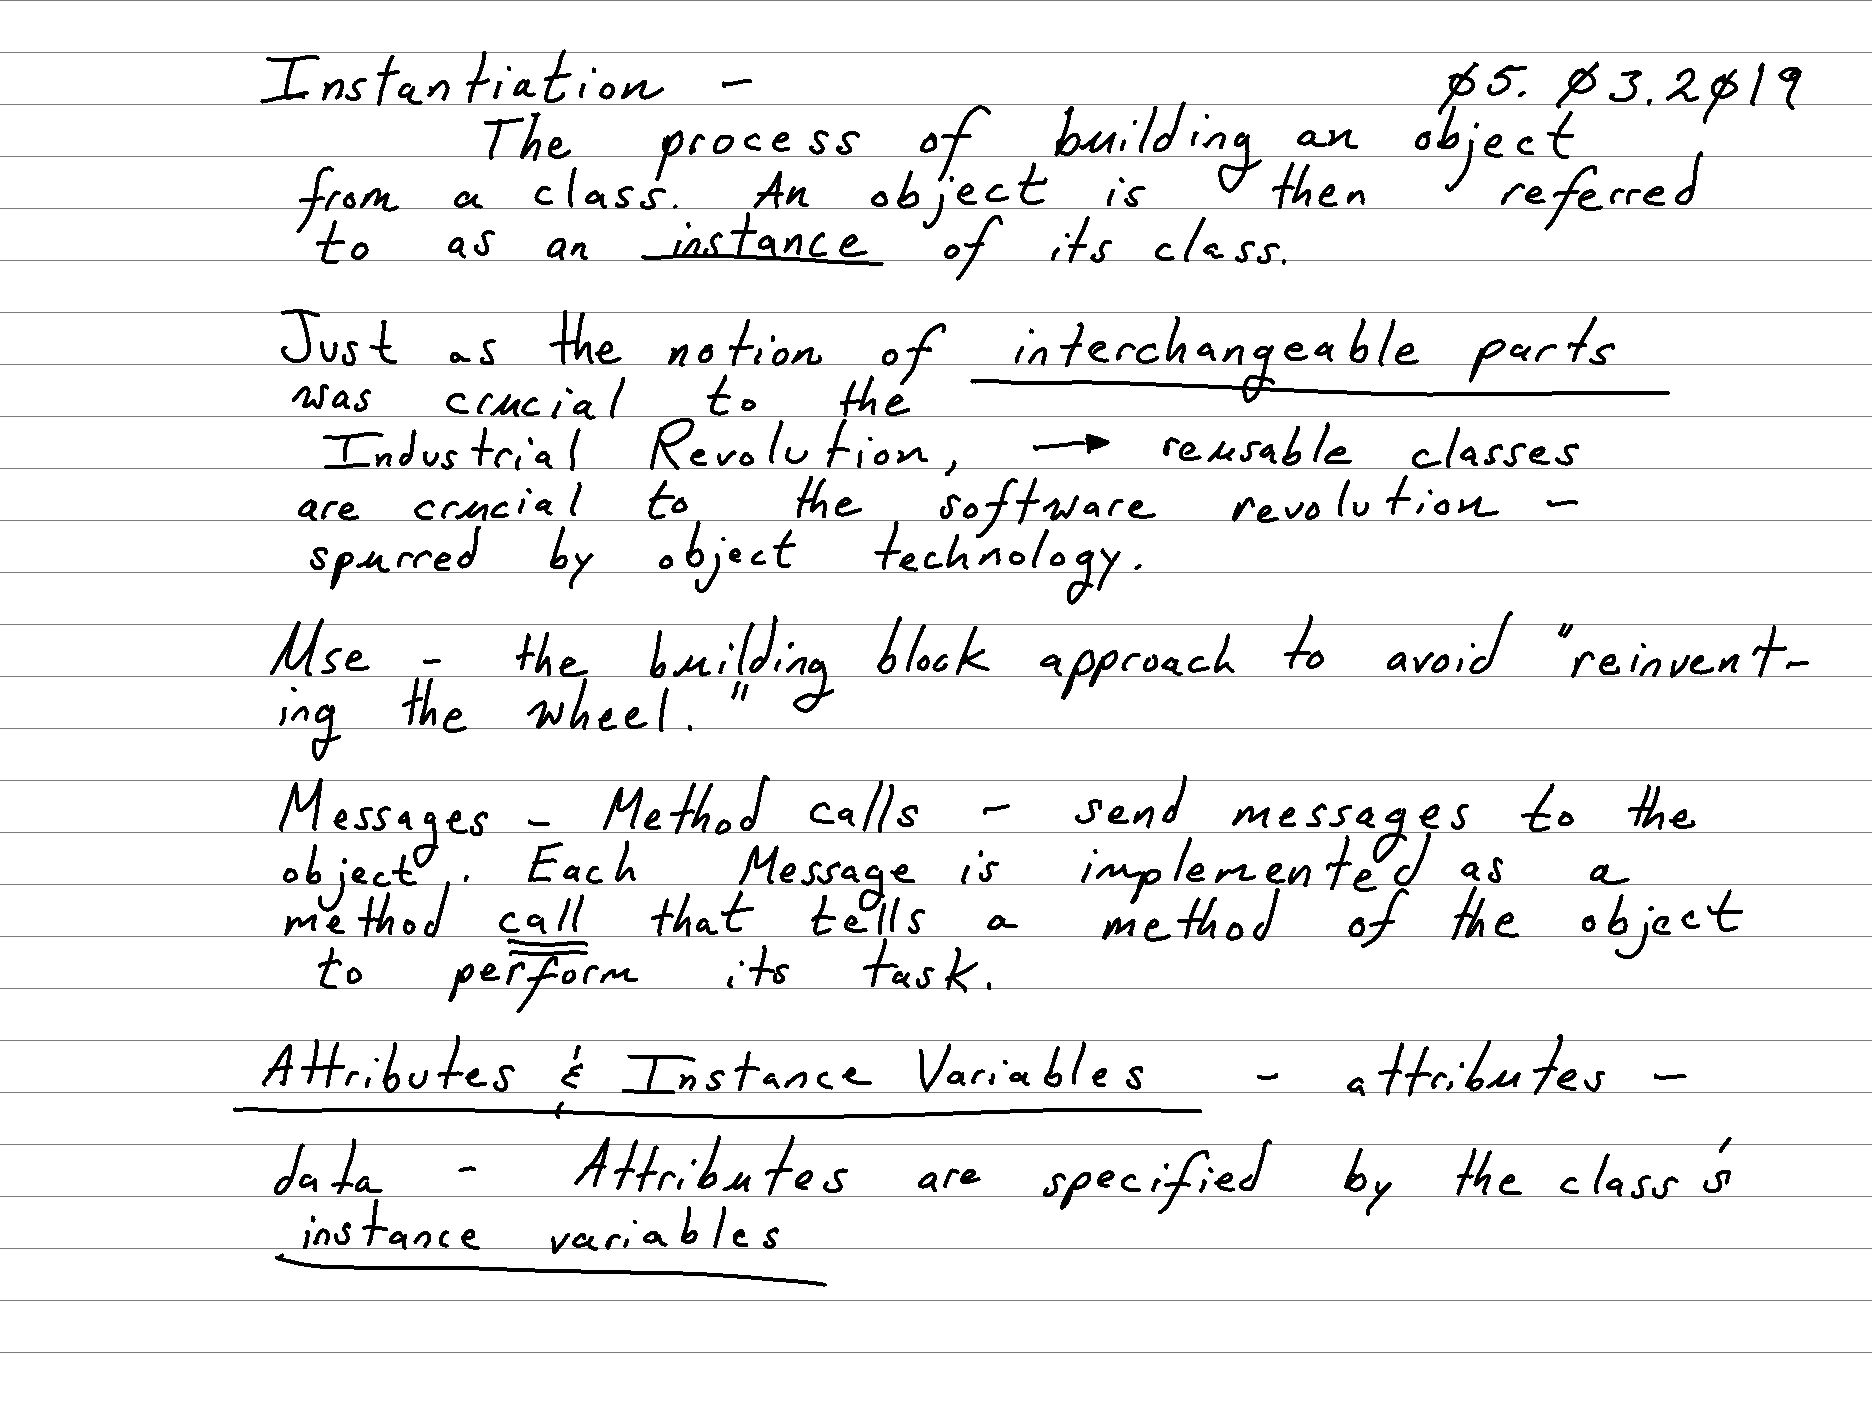 Instantiation - 05.03.2019
The process of building an object
from a class. An object is then referred
to as an instance of its class.
Just as the notion of interchangeable parts
was crucial to the
Industrial Revolution, → reusable classes
are crucial to the software revolution -
spurred by object technology.
Use - the building block approach to avoid "reinvent-
ing the wheel."
Messages - Method calls - send messages to the
object. Each Message is implemented as a
method call that tells a method of the object
to perform its task.
Attributes & Instance Variables - attributes -
data - Attributes are specified by the class's
instance variables